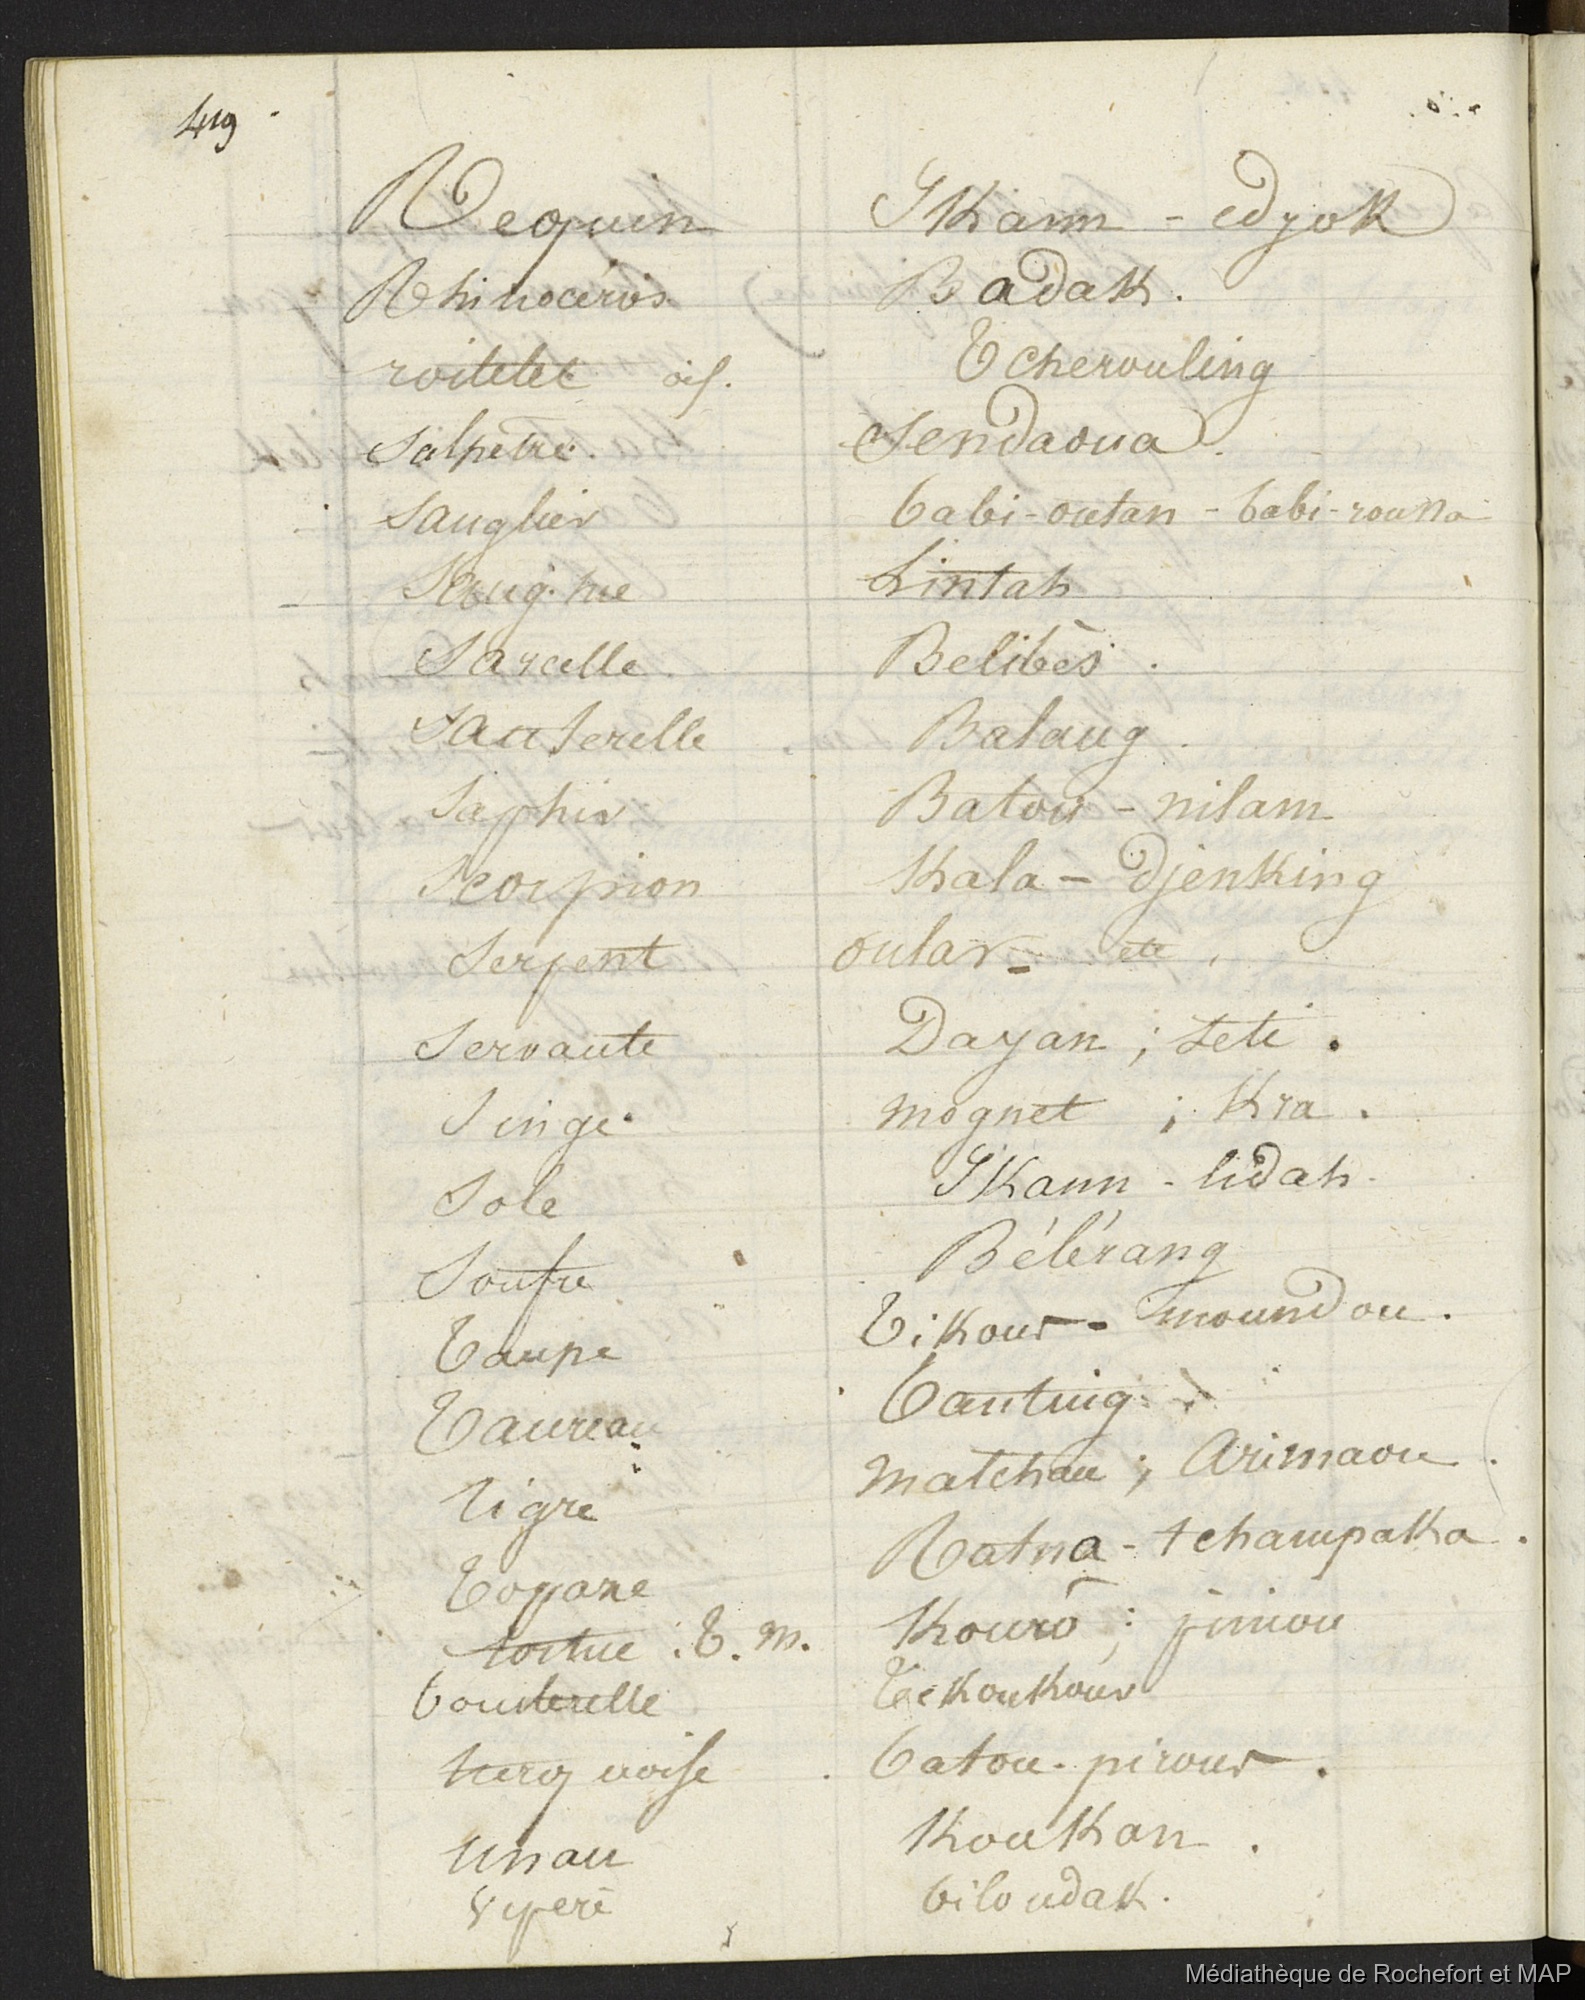 419
Requin Ikann - edjok
Rhinocéros Badak.
roitelet ois. Tcherouling
Salpetre. Sendaoua.
Sanglier babi-outan - babi-roussa
Sangsue Lintah
Sarcelle. Belibès.
Sauterelle Balang.
Saphir Batou - nilam
Scorpion Kala - Djenking
Serpent oular - etc.
Servante Dayan ; seti.
Singe mognet ; Kra.
Sole Ikann - lidah.
Soufre Bélérang
Taupe Tikour - moundou.
Taureau Banting
Tigre matchan ; Arimaou.
Topaze Ratna - tchampaka.
tortue. T. M. Kouro ; piniou
tourterelle Tekoukour
turquoise batou - pirour.
Unau Koukan.
Vipere biloudak.
Médiathèque de Rochefort et MAP